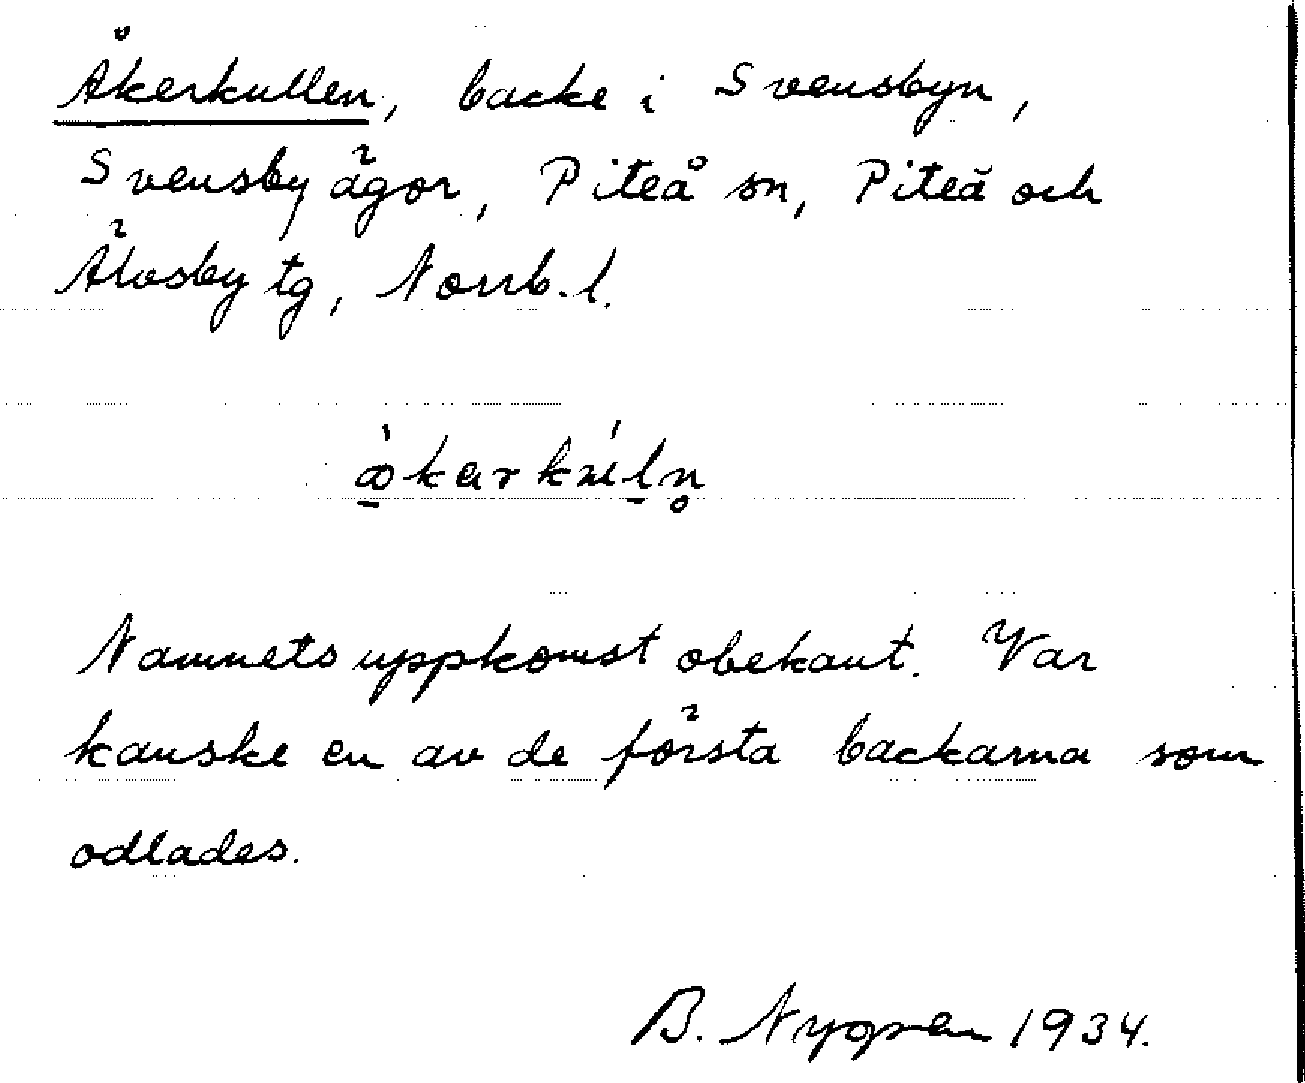 Åkerkullen, backe i Svensbyn,
Svensby ägor, Piteå sn, Piteå och
Älvsby tg, Norrb. l.
Namnets uppkomst obekant. Var
kanske en av de första backarna som
odlades.
B. Nygren 1934.